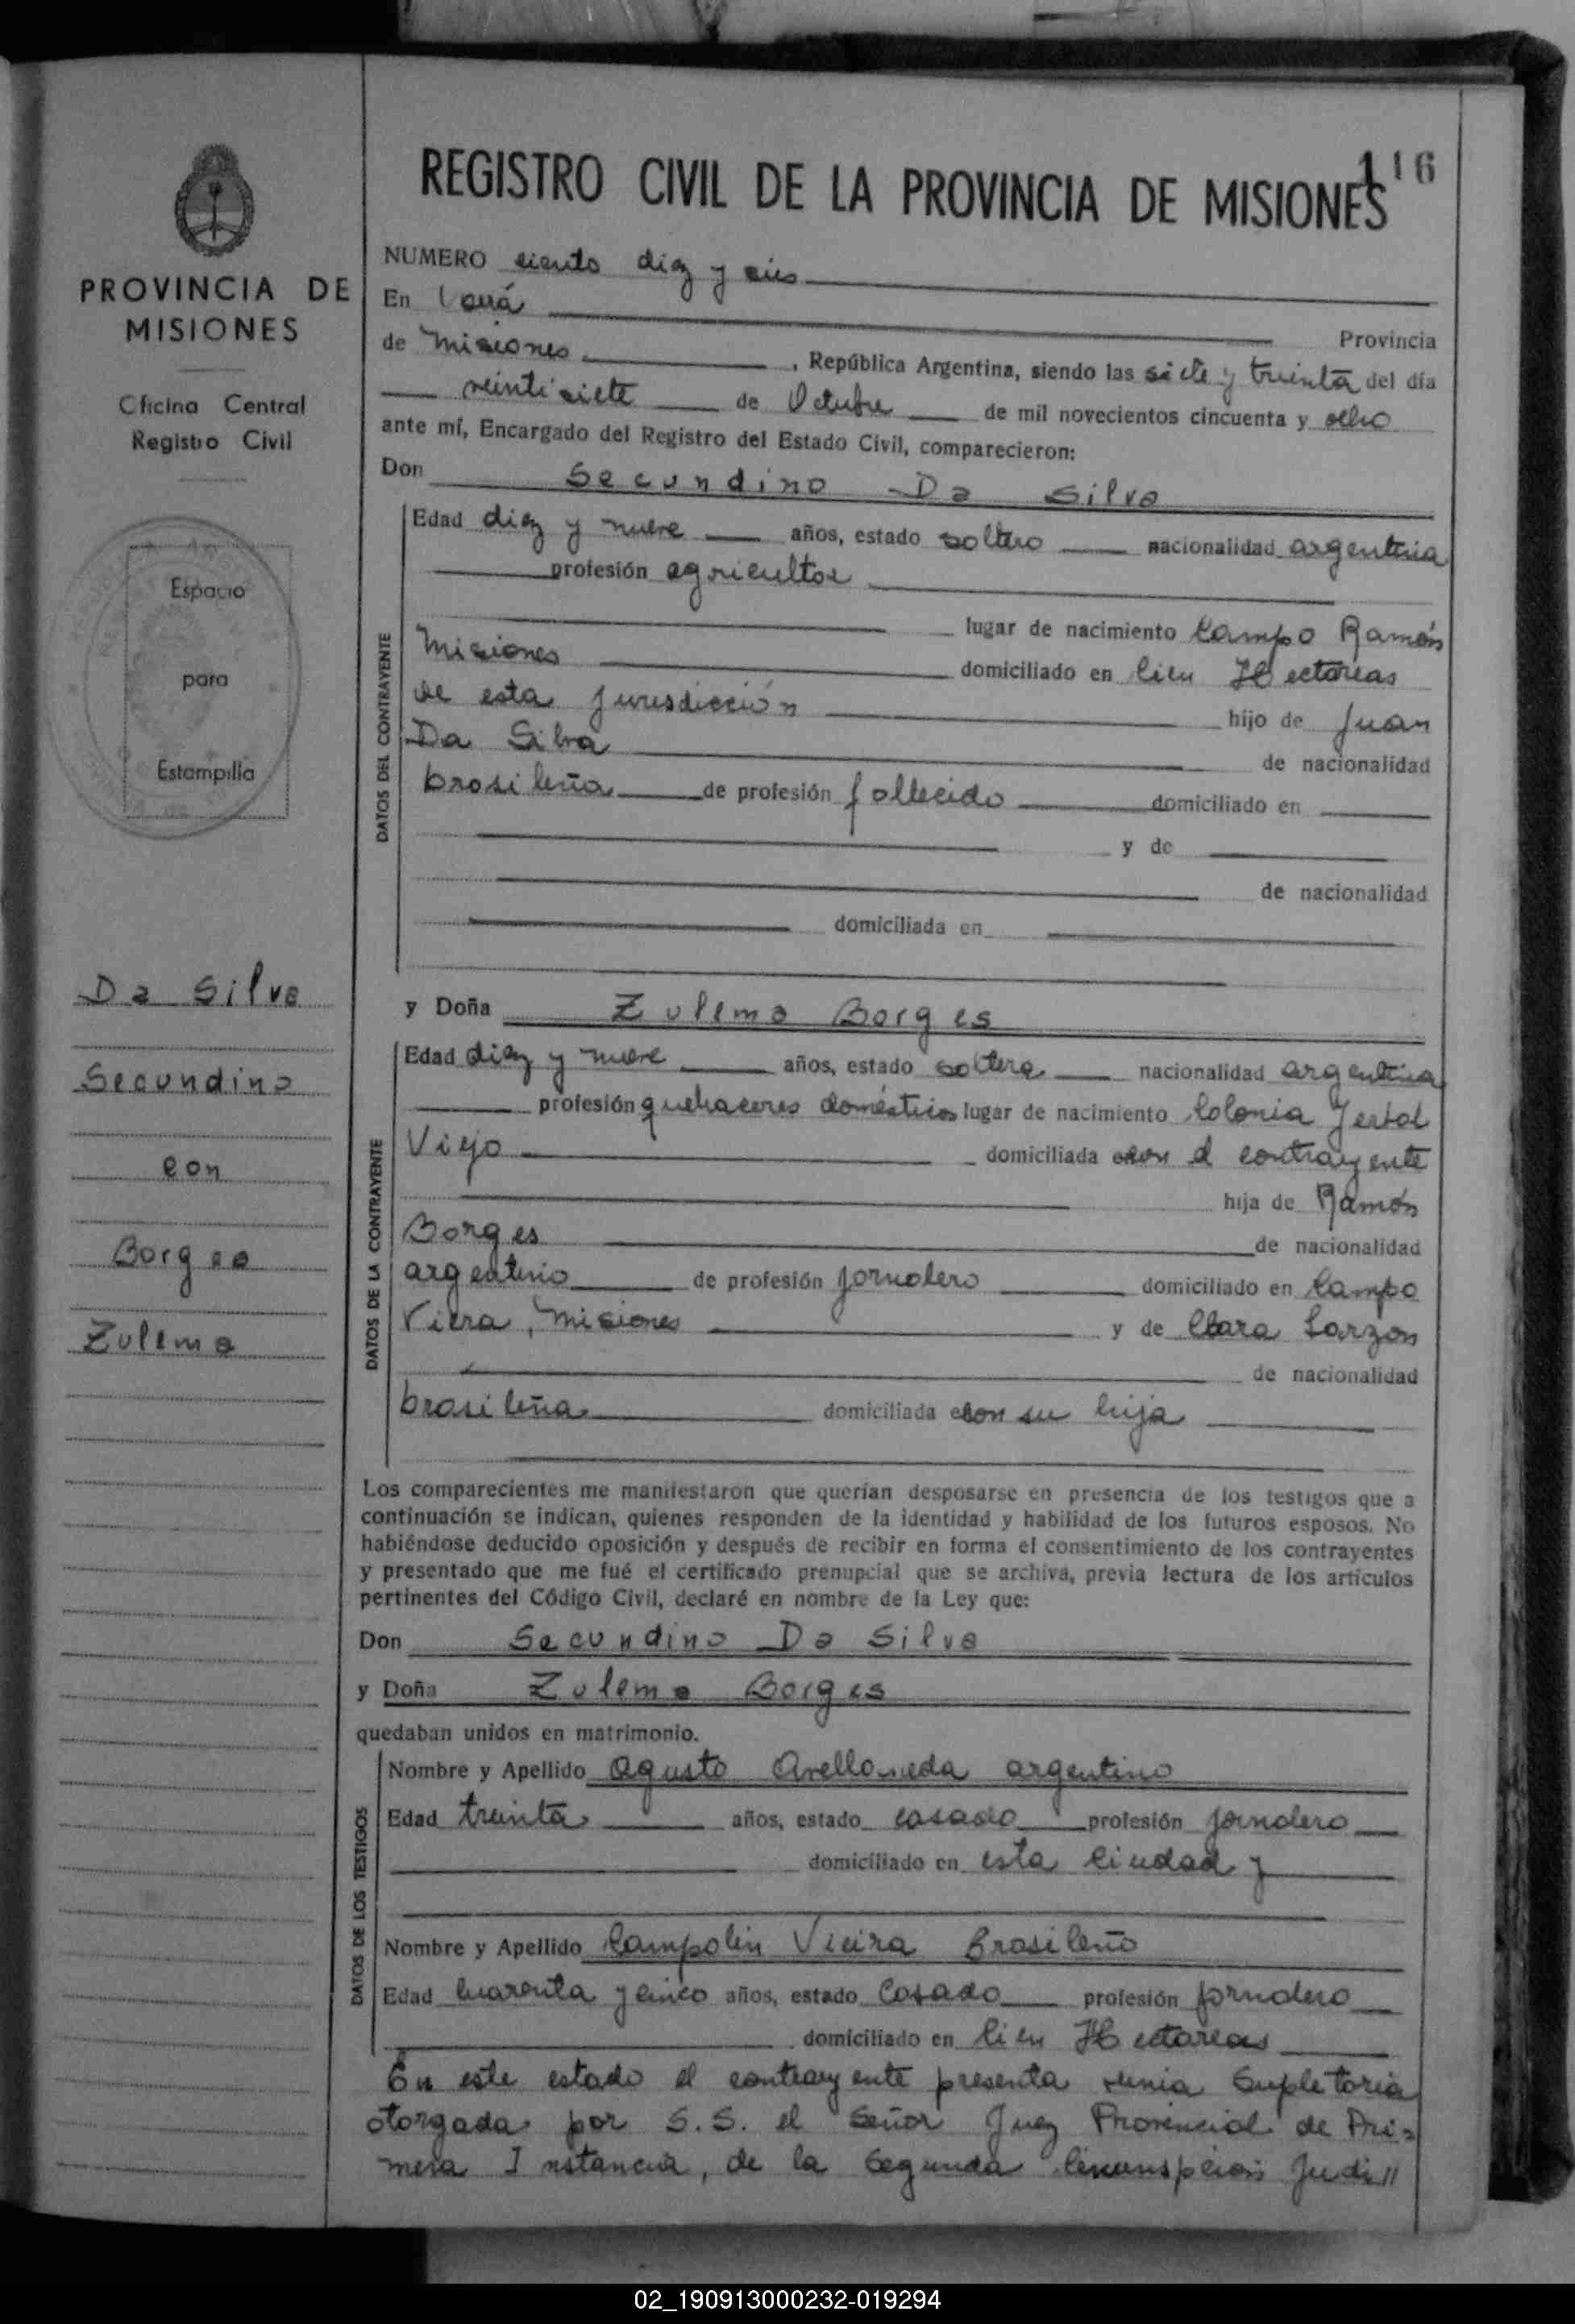 116
REGISTRO CIVIL DE LA PROVINCIA DE MISIONES
PROVINCIA DE
MISIONES
Oficina Central
Registro Civil
Espacio
para
Estampilla
Da Silva
Secundino
con
Borges
Zulema
NUMERO ciento diez y seis
En
Provincia
de Misiones , República Argentina, siendo las siete y treinta del día
veintisiete de Octubre de mil novecientos cincuenta y ocho
ante mí, Encargado del Registro del Estado Civil, comparecieron:
Don Secundino Da Silva
DATOS DEL CONTRAYENTE
Edad diez y nueve años, estado soltero nacionalidad argentina
profesión agricultor
lugar de nacimiento Campo Ramón
Misiones domiciliado en Cien Hectáreas
de esta jurisdicción hijo de Juan
Da Silva de nacionalidad
brasileña de profesión fallecido domiciliado en
y de
de nacionalidad
domiciliada en
y Doña Zulema Borges
DATOS DE LA CONTRAYENTE
Edad diez y nueve años, estado soltera nacionalidad argentina
profesión quehaceres domésticos lugar de nacimiento Colonia Yerbal
Viejo domiciliada con el contrayente
hija de Ramón
Borges de nacionalidad
argentino de profesión jornalero domiciliado en Campo
Viera, Misiones y de Clara
de nacionalidad
brasileña domiciliada con su hija
Los comparecientes me manifestaron que querían desposarse en presencia de los testigos que a
continuación se indican, quienes responden de la identidad y habilidad de los futuros esposos. No
habiéndose deducido oposición y después de recibir en forma el consentimiento de los contrayentes
y presentado que me fué el certificado prenupcial que se archiva, previa lectura de los artículos
pertinentes del Código Civil, declaré en nombre de la Ley que:
Don Secundino Da Silva
y Doña Zulema Borges
quedaban unidos en matrimonio.
DATOS DE LOS TESTIGOS
Nombre y Apellido Agusto Avellaneda argentino
Edad treinta años, estado casado profesión jornalero
domiciliado en esta ciudad y
Nombre y Apellido Campolin Vieira Brasileño
Edad cuarenta y cinco años, estado Casado profesión jornalero
domiciliado en Cien Hectareas
En este estado el contrayente presenta venia Supletoria
otorgada por S.S. el Señor Juez Provincial de Pri=
mera Instancia, de la Segunda Judi//
02_190913000232-019294